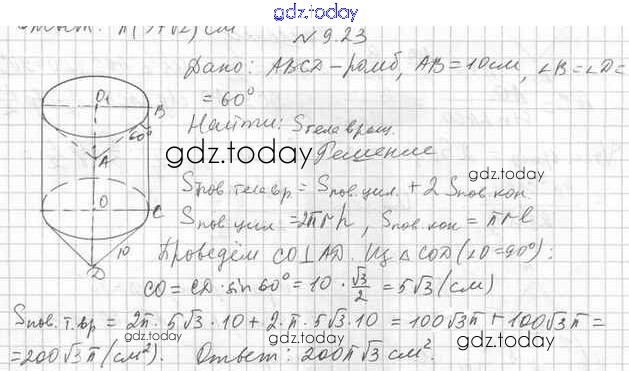 gdz.today
Ответ: π(9+√2) см
№ 9.23
Дано: ABCD – ромб, AB = 10 см, ∠B = ∠D =
= 60°
Найти: Sтела вращ.
gdz.today
Решение
Sпов. тела вр. = Sпов. цил. + 2 Sпов. кон.
Sпов. цил = 2πrh, Sпов. кон = πrl
Проведём CO⊥AD. Из △COD (∠O = 90°):
CO = CD · sin 60° = 10 · √3/2 = 5√3 (см)
Sпов. т. вр = 2π · 5√3 · 10 + 2 · π · 5√3 · 10 = 100√3π + 100√3π =
= 200√3π (см²). Ответ: 200π√3 см².
O₁
B
60°
A
O
C
10
D
gdz.today
gdz.today
gdz.today